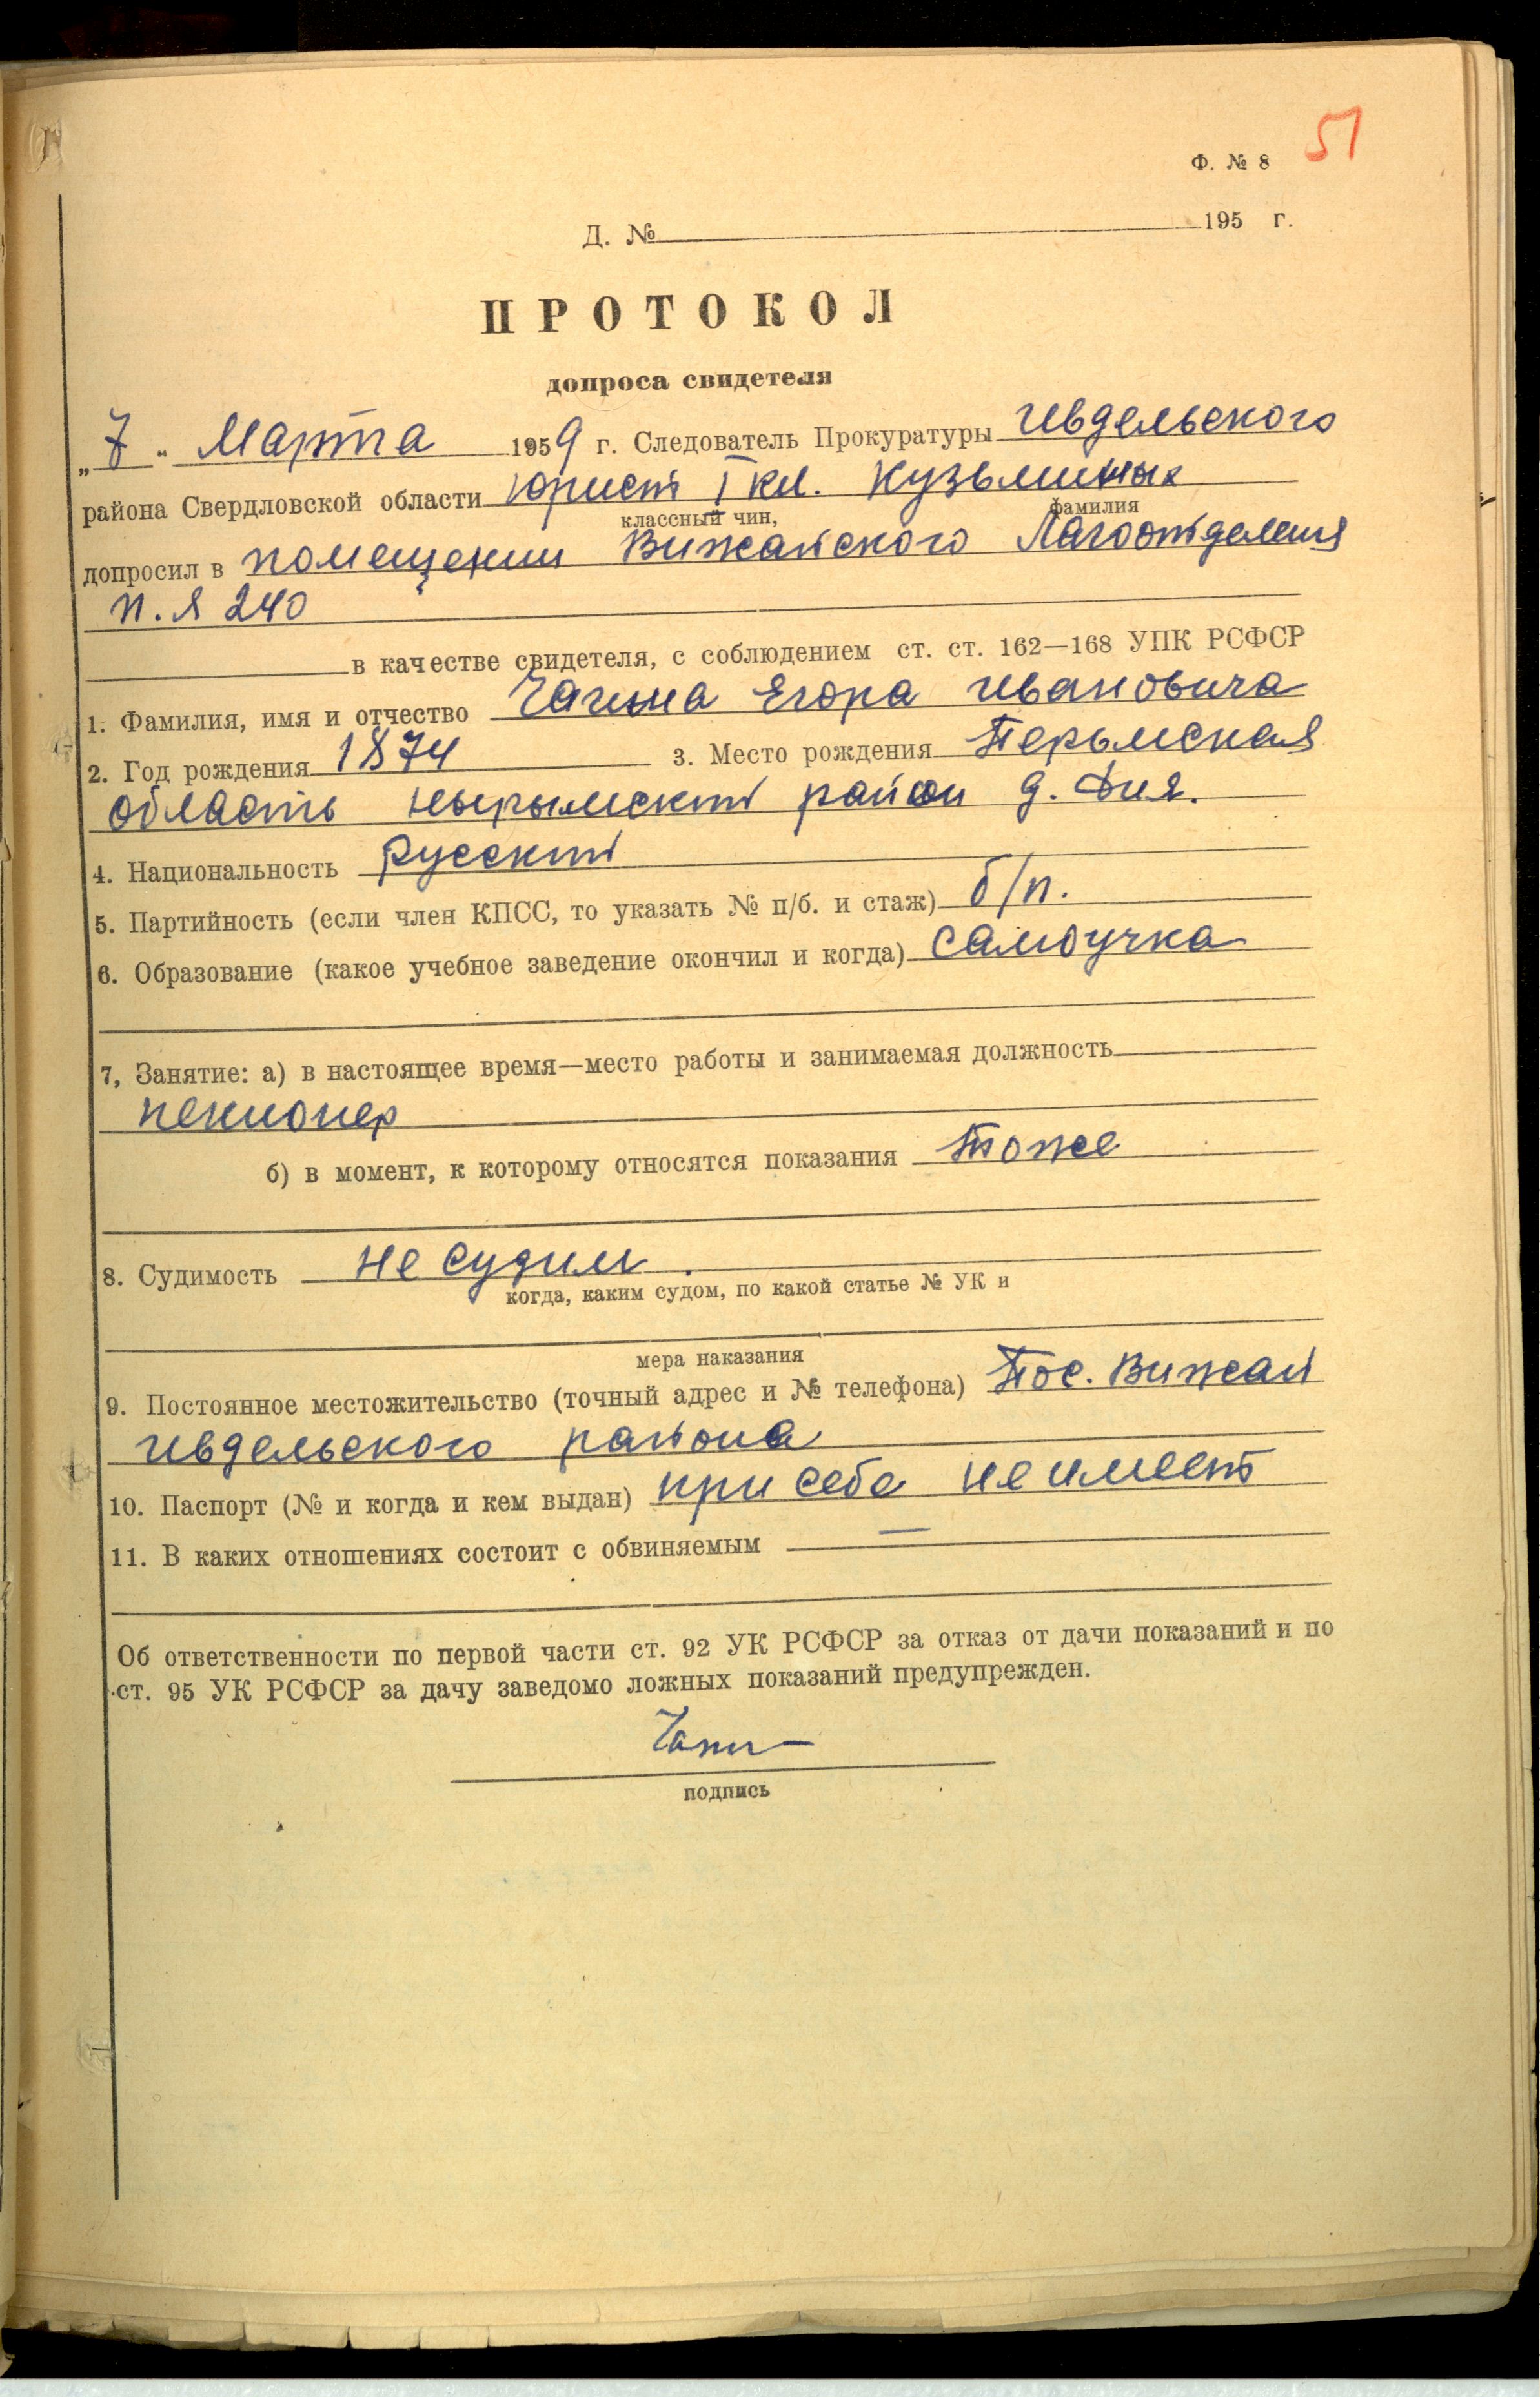 51
Ф. № 8
Д. № 195 г.
ПРОТОКОЛ
допроса свидетеля
„7“ Марта 1959 г. Следователь Прокуратуры Ивдельского
района Свердловской области юрист I кл. Кузьминых
классный чин, фамилия
допросил в помещении Вижайского Лагоотделения
п.я 240
в качестве свидетеля, с соблюдением ст. ст. 162—168 УПК РСФСР
1. Фамилия, имя и отчество Чагина Егора Ивановича
2. Год рождения 1874 3. Место рождения Перьмская
область Нырымский район д. Дия.
4. Национальность русский
5. Партийность (если член КПСС, то указать № п/б. и стаж) б/п.
6. Образование (какое учебное заведение окончил и когда) самоучка
7, Занятие: а) в настоящее время—место работы и занимаемая должность
пенионер
б) в момент, к которому относятся показания тоже
8. Судимость не судим.
когда, каким судом, по какой статье № УК и
мера наказания
9. Постоянное местожительство (точный адрес и № телефона) Пос. Вижай
Ивдельского района
10. Паспорт (№ и когда и кем выдан) при себе не имеет
11. В каких отношениях состоит с обвиняемым —
Об ответственности по первой части ст. 92 УК РСФСР за отказ от дачи показаний и по
ст. 95 УК РСФСР за дачу заведомо ложных показаний предупрежден.
подпись